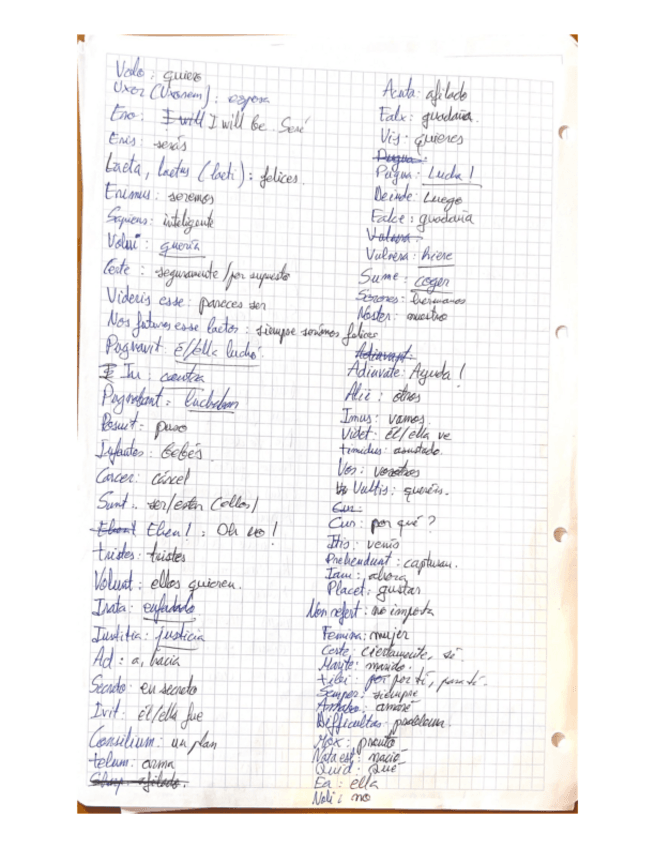 Volo: quiero
Uxor (Uxorem): esposa
Ero: I will I will be. Seré
Eris: serás
Laeta, laetus (laeti): felices.
Erimus: seremos
Sapiens: inteligente
Volui: quería
Certe: seguramente/por supuesto
Videris esse: pareces ser
Nos futuros esse laetos: siempre seremos felices
Pugnavit: él/ella luchó
In: contra
Pugnabant: luchaban
Posuit: puso
Infantes: bebés
Carcer: cárcel
Sunt: ser/estar (ellos)
Eheu!: Oh no!
tristes: tristes
Volunt: ellos quieren.
Irata: enfadado
Iustitia: justicia
Ad: a, hacia
Secreto: en secreto
Ivit: él/ella fue
Consilium: un plan
telum: arma
Sharp: afilado.
Acuta: afilado
Falx: guadaña.
Vis: quieres
Pugna:
Pugna: Lucha!
Deinde: Luego
Falce: guadaña
Vulnera: hiere
Sume: coger
Sorores: hermanas
Noster: nuestro
Adiuvate: Ayuda!
Alii: otros
Imus: vamos
Videt: Él/ella ve
timidus: asustado.
Vos: vosotros
Vultis: queréis.
Cur
Cur: por qué?
Itis: venís
Prehendunt: capturan.
Iam: ahora
Placet: gustar
Non refert: no importa
Femina: mujer
Certe: ciertamente, sí.
Marite: marido.
tibi: por ti, para ti.
Semper: siempre
Amabo: amaré
Difficultas: problema.
Mox: pronto
Nata est: nació
Quid: Qué
Ea: ella
Noli: no